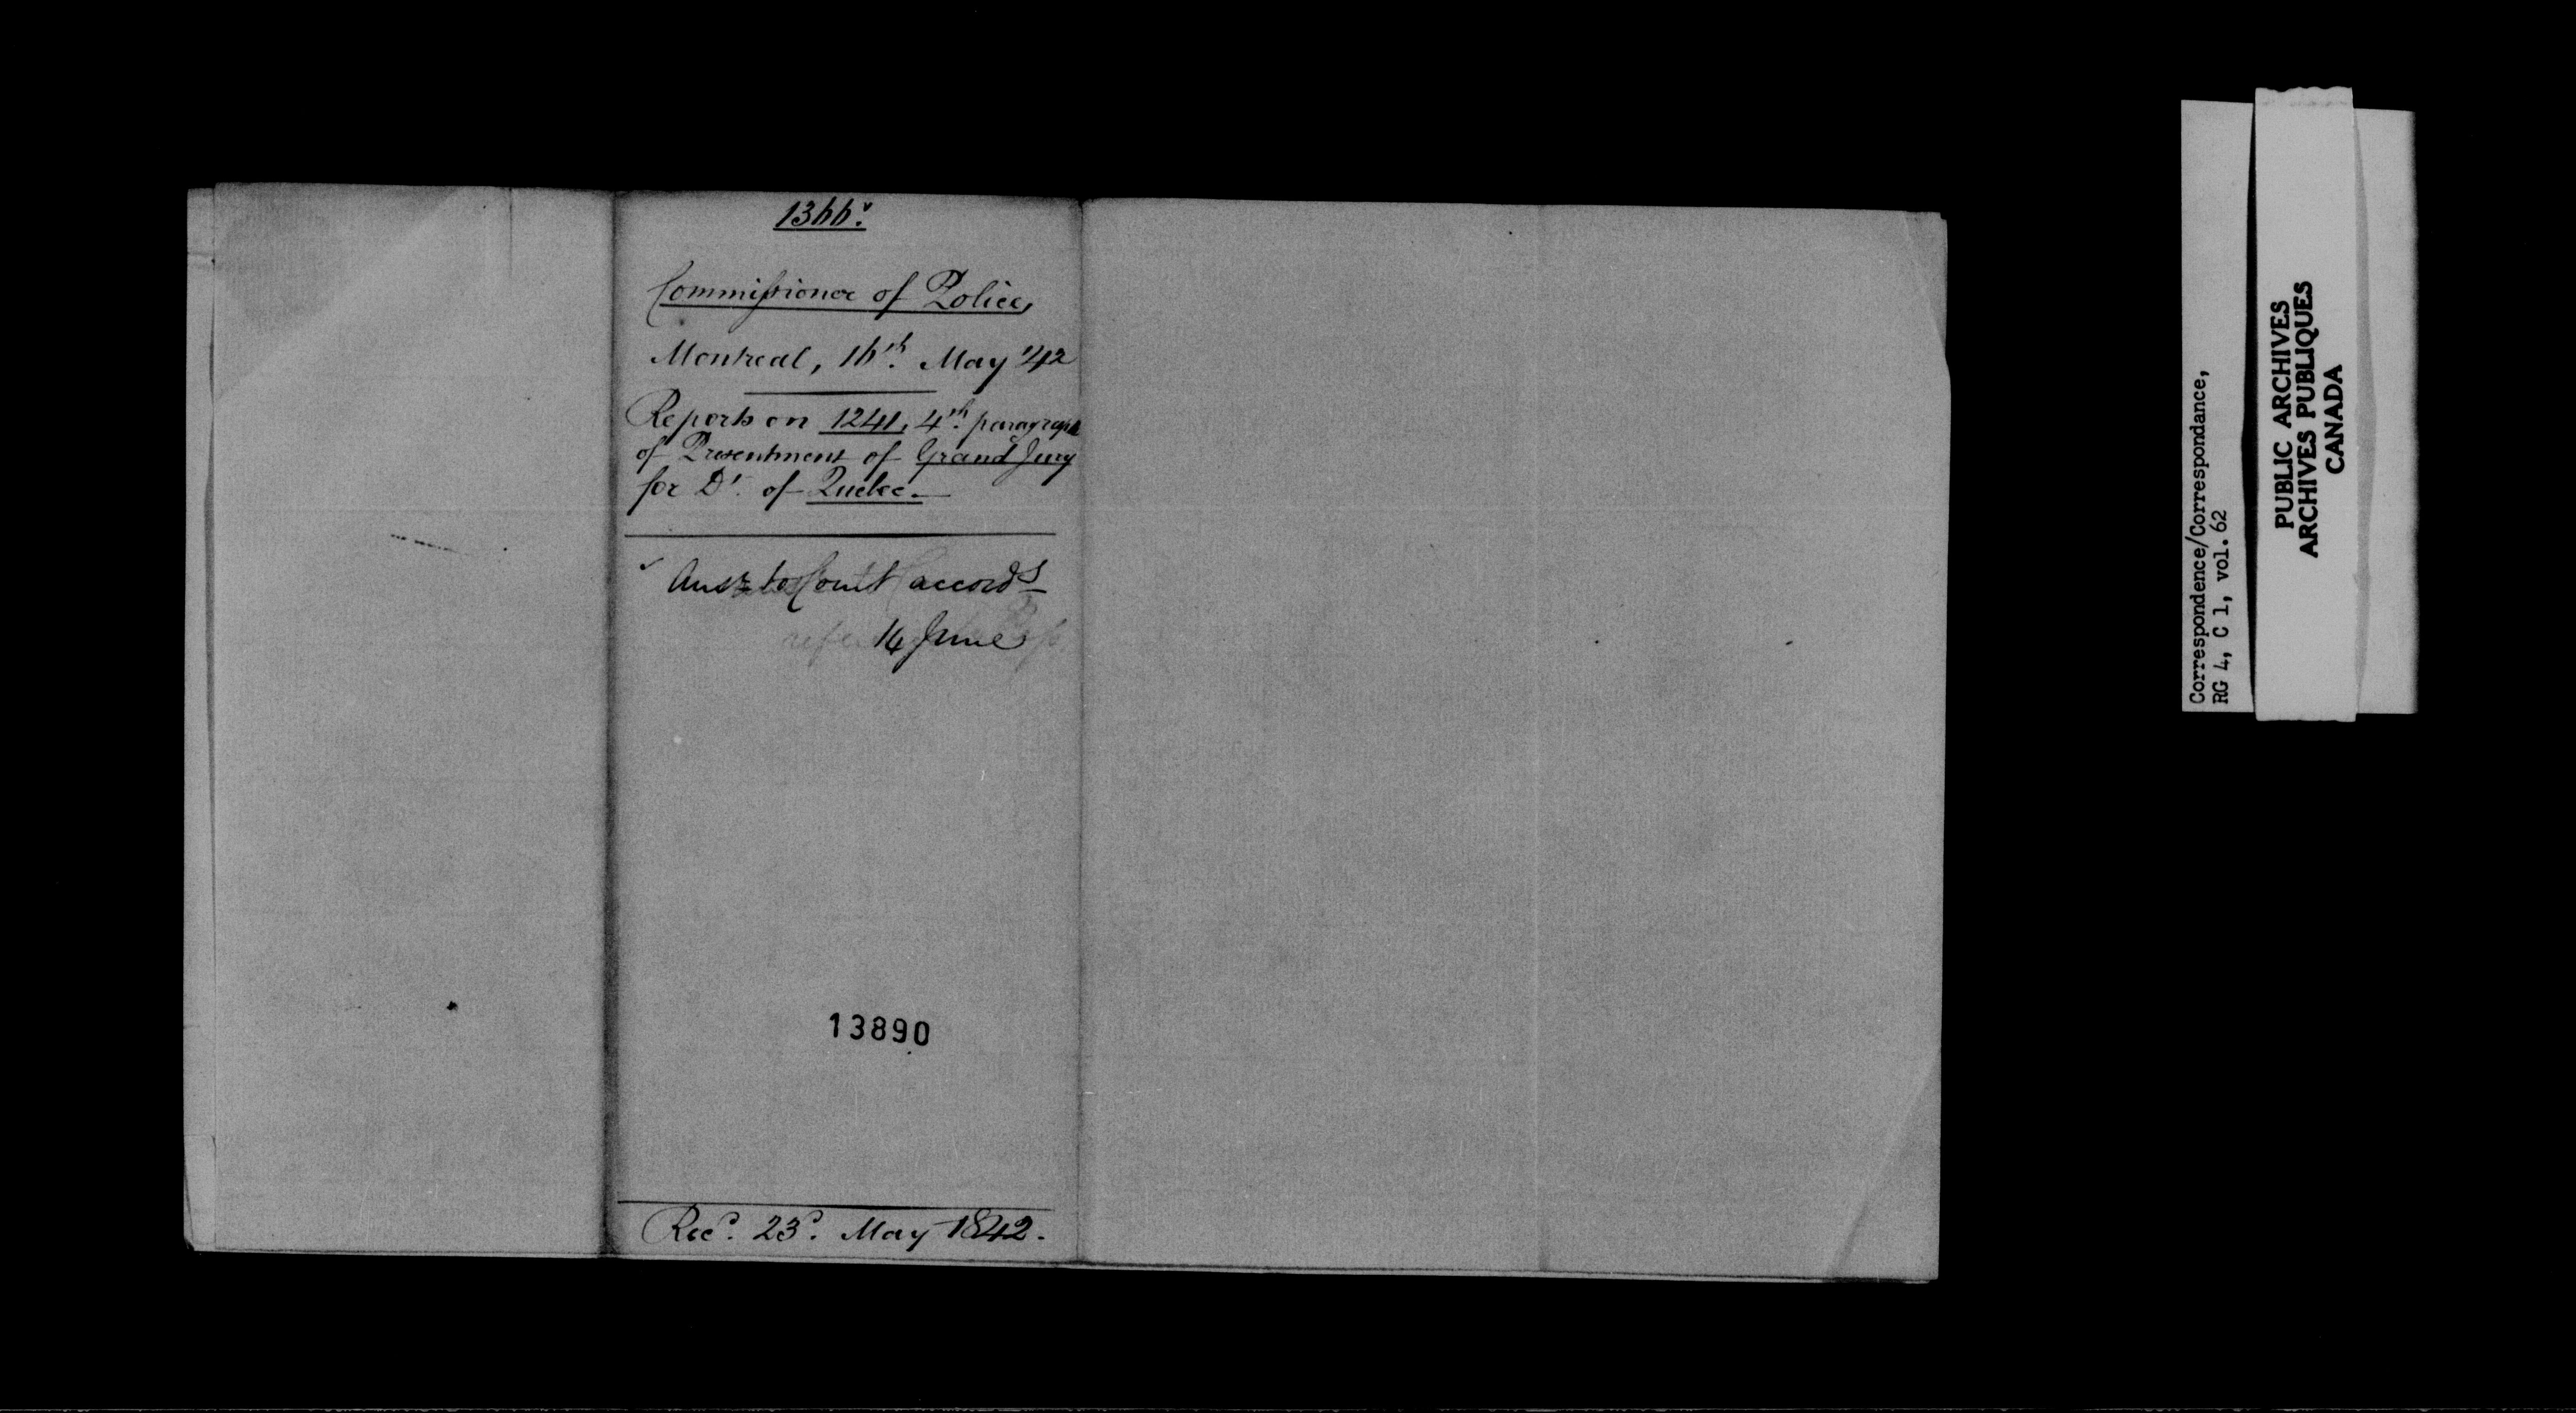 1366.
Commissioner of Police,
Montreal, 16th. May '42
Reports on 1241, 4th. paragraph
of Presentment of Grand Jury
for Dt. of Quebec.
Ansr to Court accordg
14 June
13890
Recd. 23d. May 1842.
Correspondence/Correspondance,
RG 4, C 1, vol. 62
PUBLIC ARCHIVES
ARCHIVES PUBLIQUES
CANADA